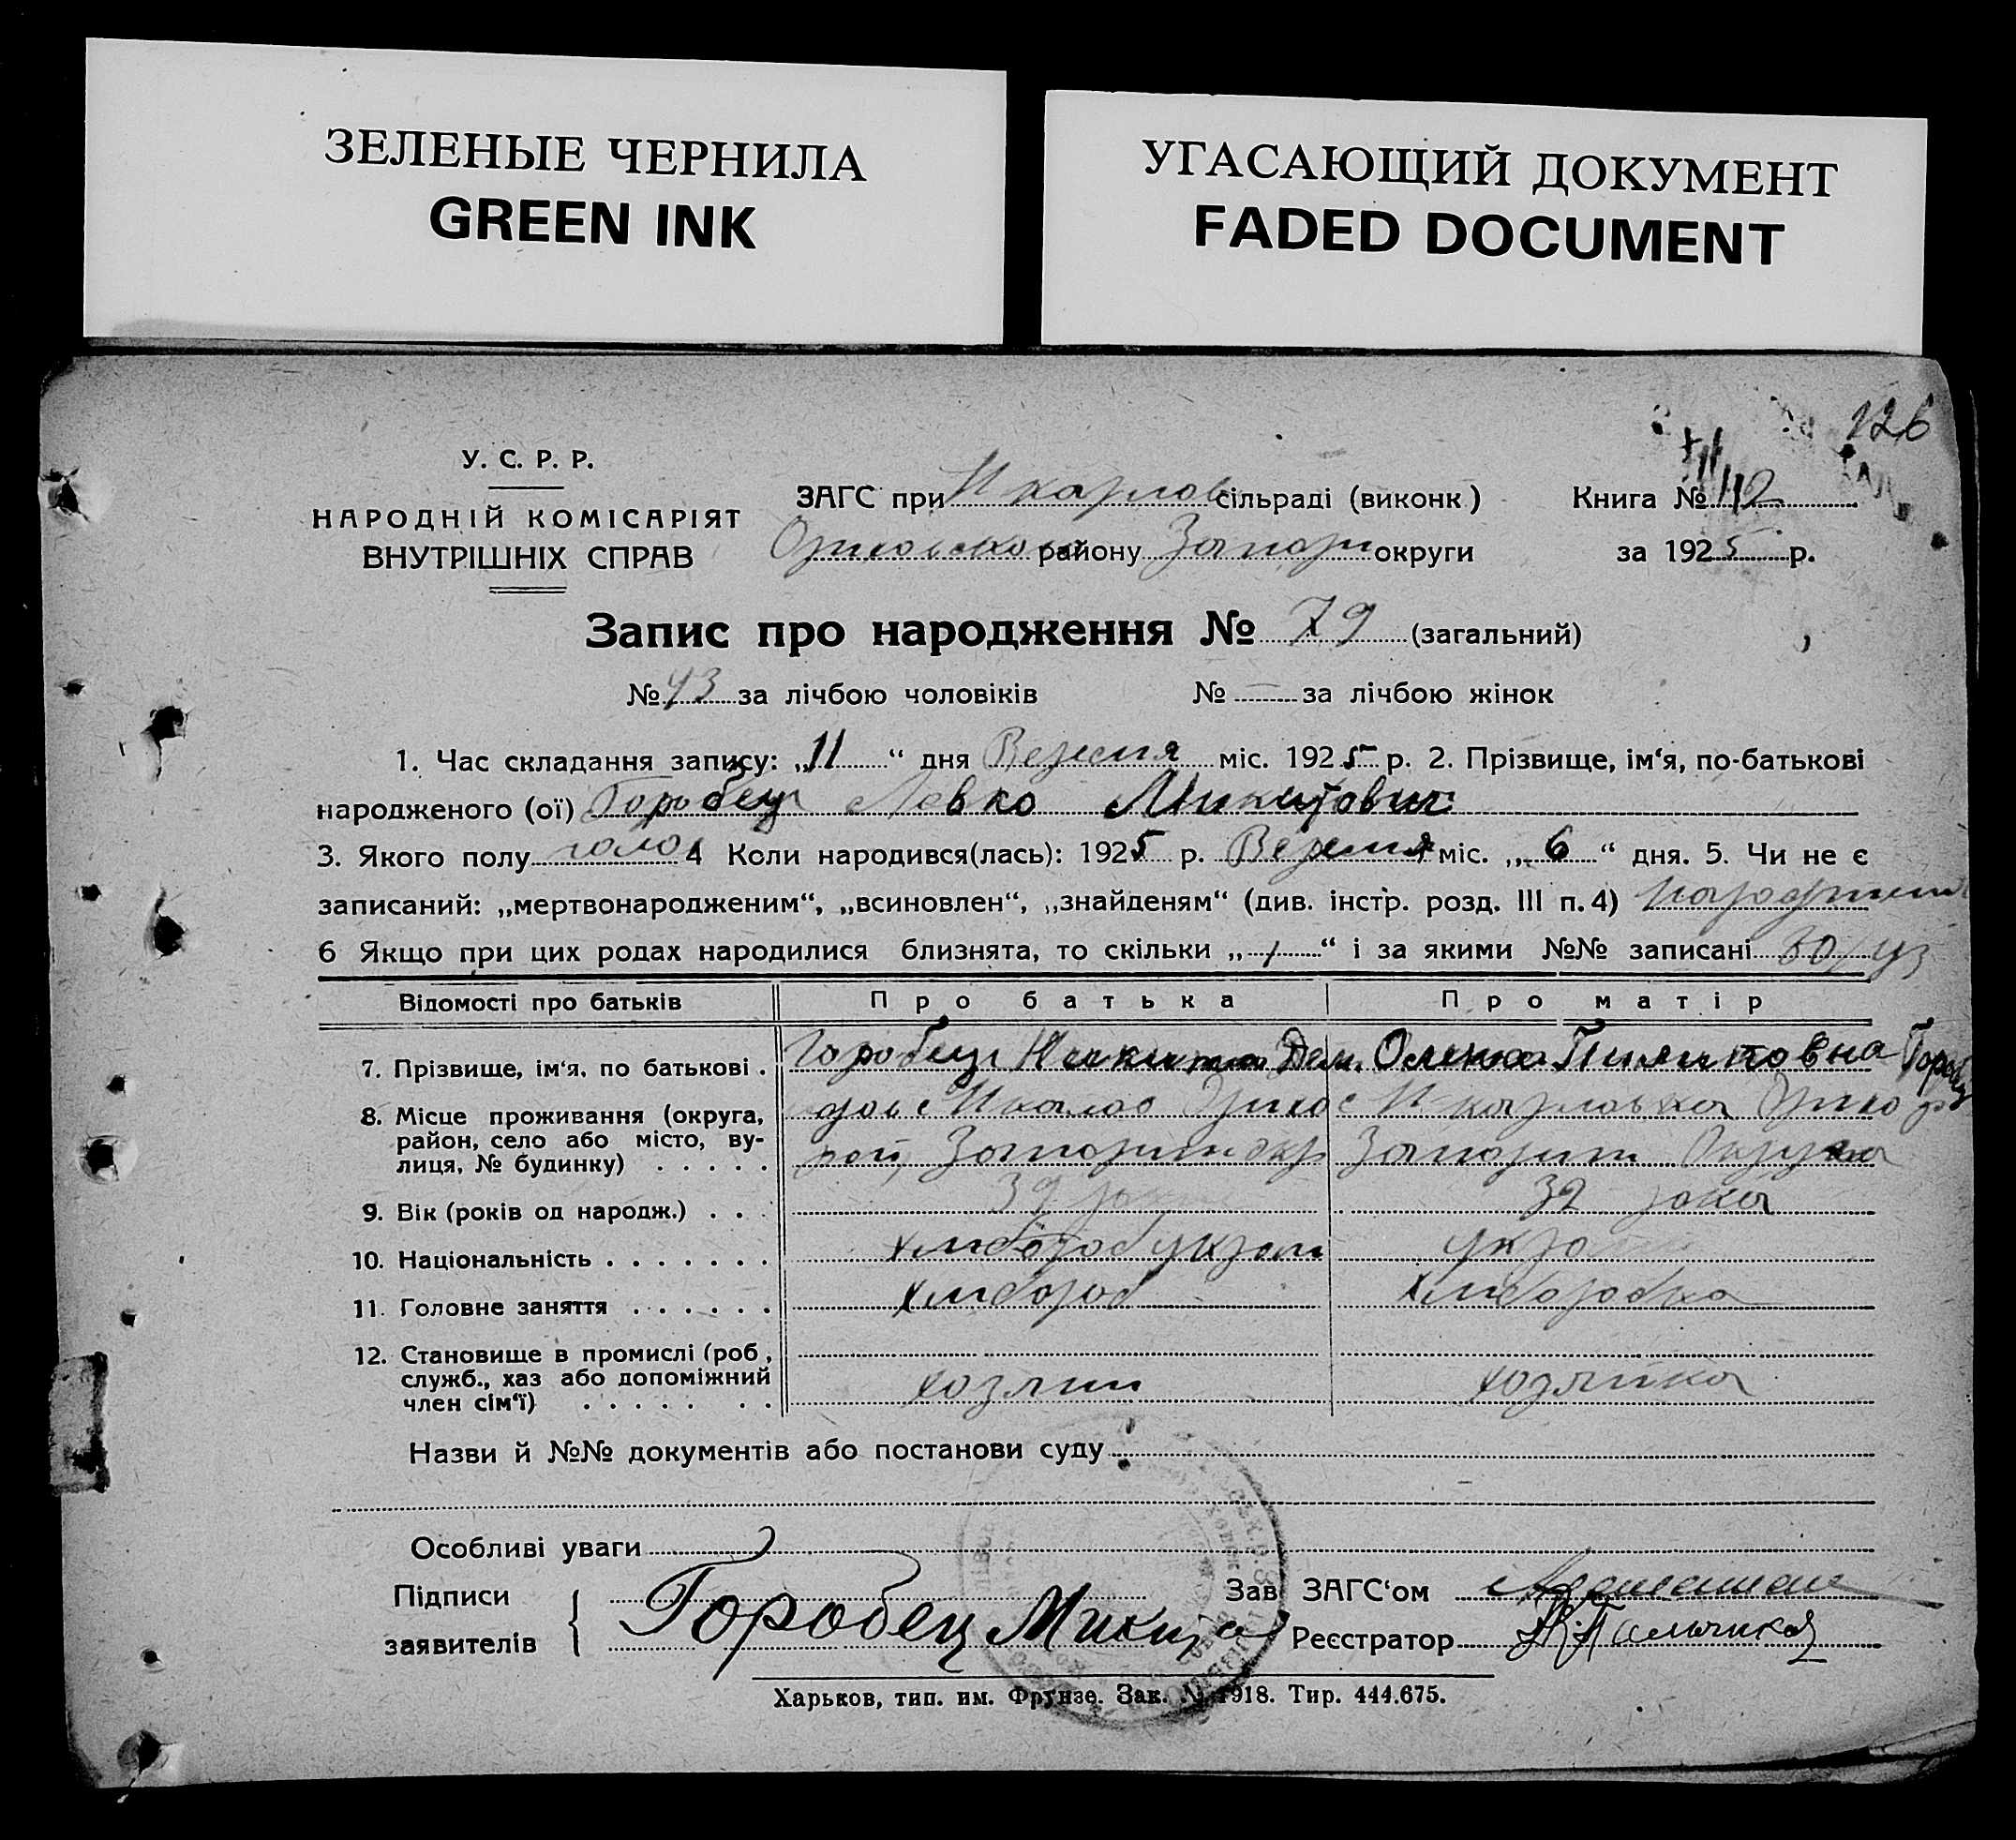 ЗЕЛЕНЫЕ ЧЕРНИЛА
GREEN INK
УГАСАЮЩИЙ ДОКУМЕНТ
FADED DOCUMENT
126
У. С. Р. Р.
НАРОДНІЙ КОМІСАРІЯТ
ВНУТРІШНІХ СПРАВ
ЗАГС при Н карлов сільраді (виконк)
Книга №
району Запор округи
за 1925 р.
Запис про народження № 79 (загальний)
№ 43 за лічбою чоловіків № — за лічбою жінок
1. Час складання запису: „11“ дня Вересня міс. 1925 р. 2. Прізвище, ім‘я, по-батькові
народженого (ої) Горобець Левко Микитович
3. Якого полу чоло 4 Коли народився(лась): 1925 р. Вересня міс. „6“ дня. 5. Чи не є
записаний: „мертвонародженим“, „всиновлен“, „знайденям“ (див. інстр. розд. III п. 4)
6 Якщо при цих родах народилися близнята, то скільки „1“ і за якими №№ записані
Відомості про батьків Про батька Про матір
7. Прізвище, ім‘я, по батькові . Горобець Никита Дем. Олена Пилиповна Горобец
8. Місце проживання (округа,
район, село або місто, ву-
лиця, № будинку) . . . . . Запориж окр Запориж Округа
9. Вік (років од народж.) . . . 39 32 рока
10. Національність . . . . . . . хлибороб украм укра
11. Головне заняття . . . . . . хлибороб хлиборобка
12. Становище в промислі (роб,
служб., хаз або допоміжний
член сім‘ї) . . . . . . . хозяин хозяйка
Назви й №№ документів або постанови суду
Особливі уваги
Підписи
заявителів
Горобец Микита
Зав ЗАГС‘ом
Реєстратор
Харьков, тип. им. Фрунзе. Зак. № 1918. Тир. 444.675.